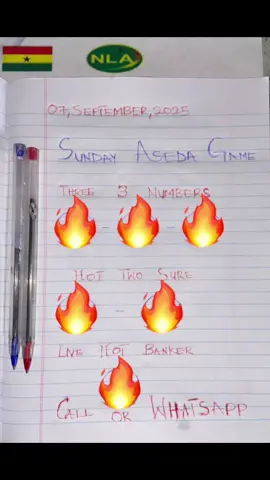 NLA
07, SEPTEMBER, 2025
SUNDAY ASEDA GAME
THREE 3 NUMBERS
HOT TWO SURE
LIVE HOT BANKER
CALL OR WHATSAPP